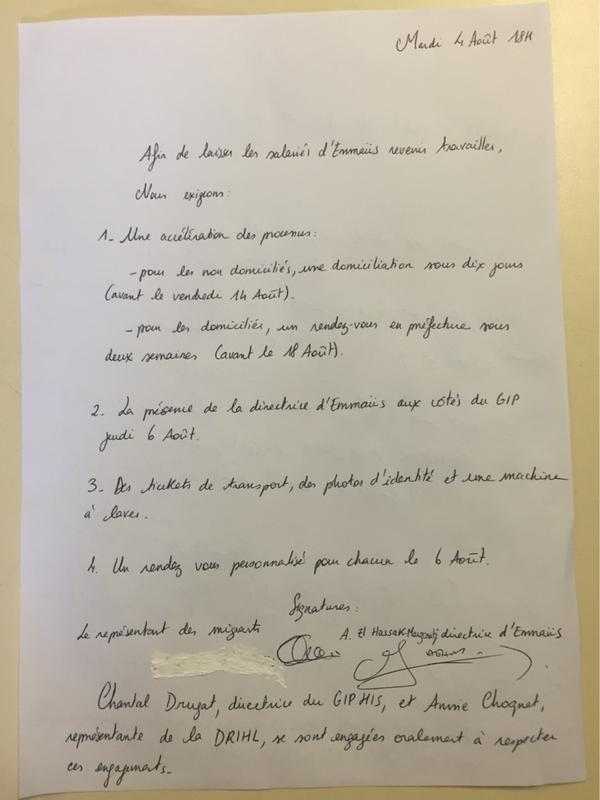 Mardi 4 Août 18H
Afin de laisser les salariés d'Emmaüs revenir travailler,
Nous exigeons :
1- Une accélération des processus :
- pour les non domiciliés, une domiciliation sous dix jours
(avant le vendredi 14 Août).
- pour les domiciliés, un rendez-vous en préfecture sous
deux semaines (avant le 18 Août).
2- La présence de la directrice d'Emmaüs aux côtés du GIP
jeudi 6 Août.
3- Des tickets de transport, des photos d'identité et une machine
à laver.
4. Un rendez vous personnalisé pour chacun le 6 Août.
Signatures :
Le représentant des migrants
A. El Hassak directrice d'Emmaüs
Chantal Drugat, directrice du GIP HIS, et Annie Choquet,
représentante de la DRIHL, se sont engagées oralement à respecter
ces engagements-